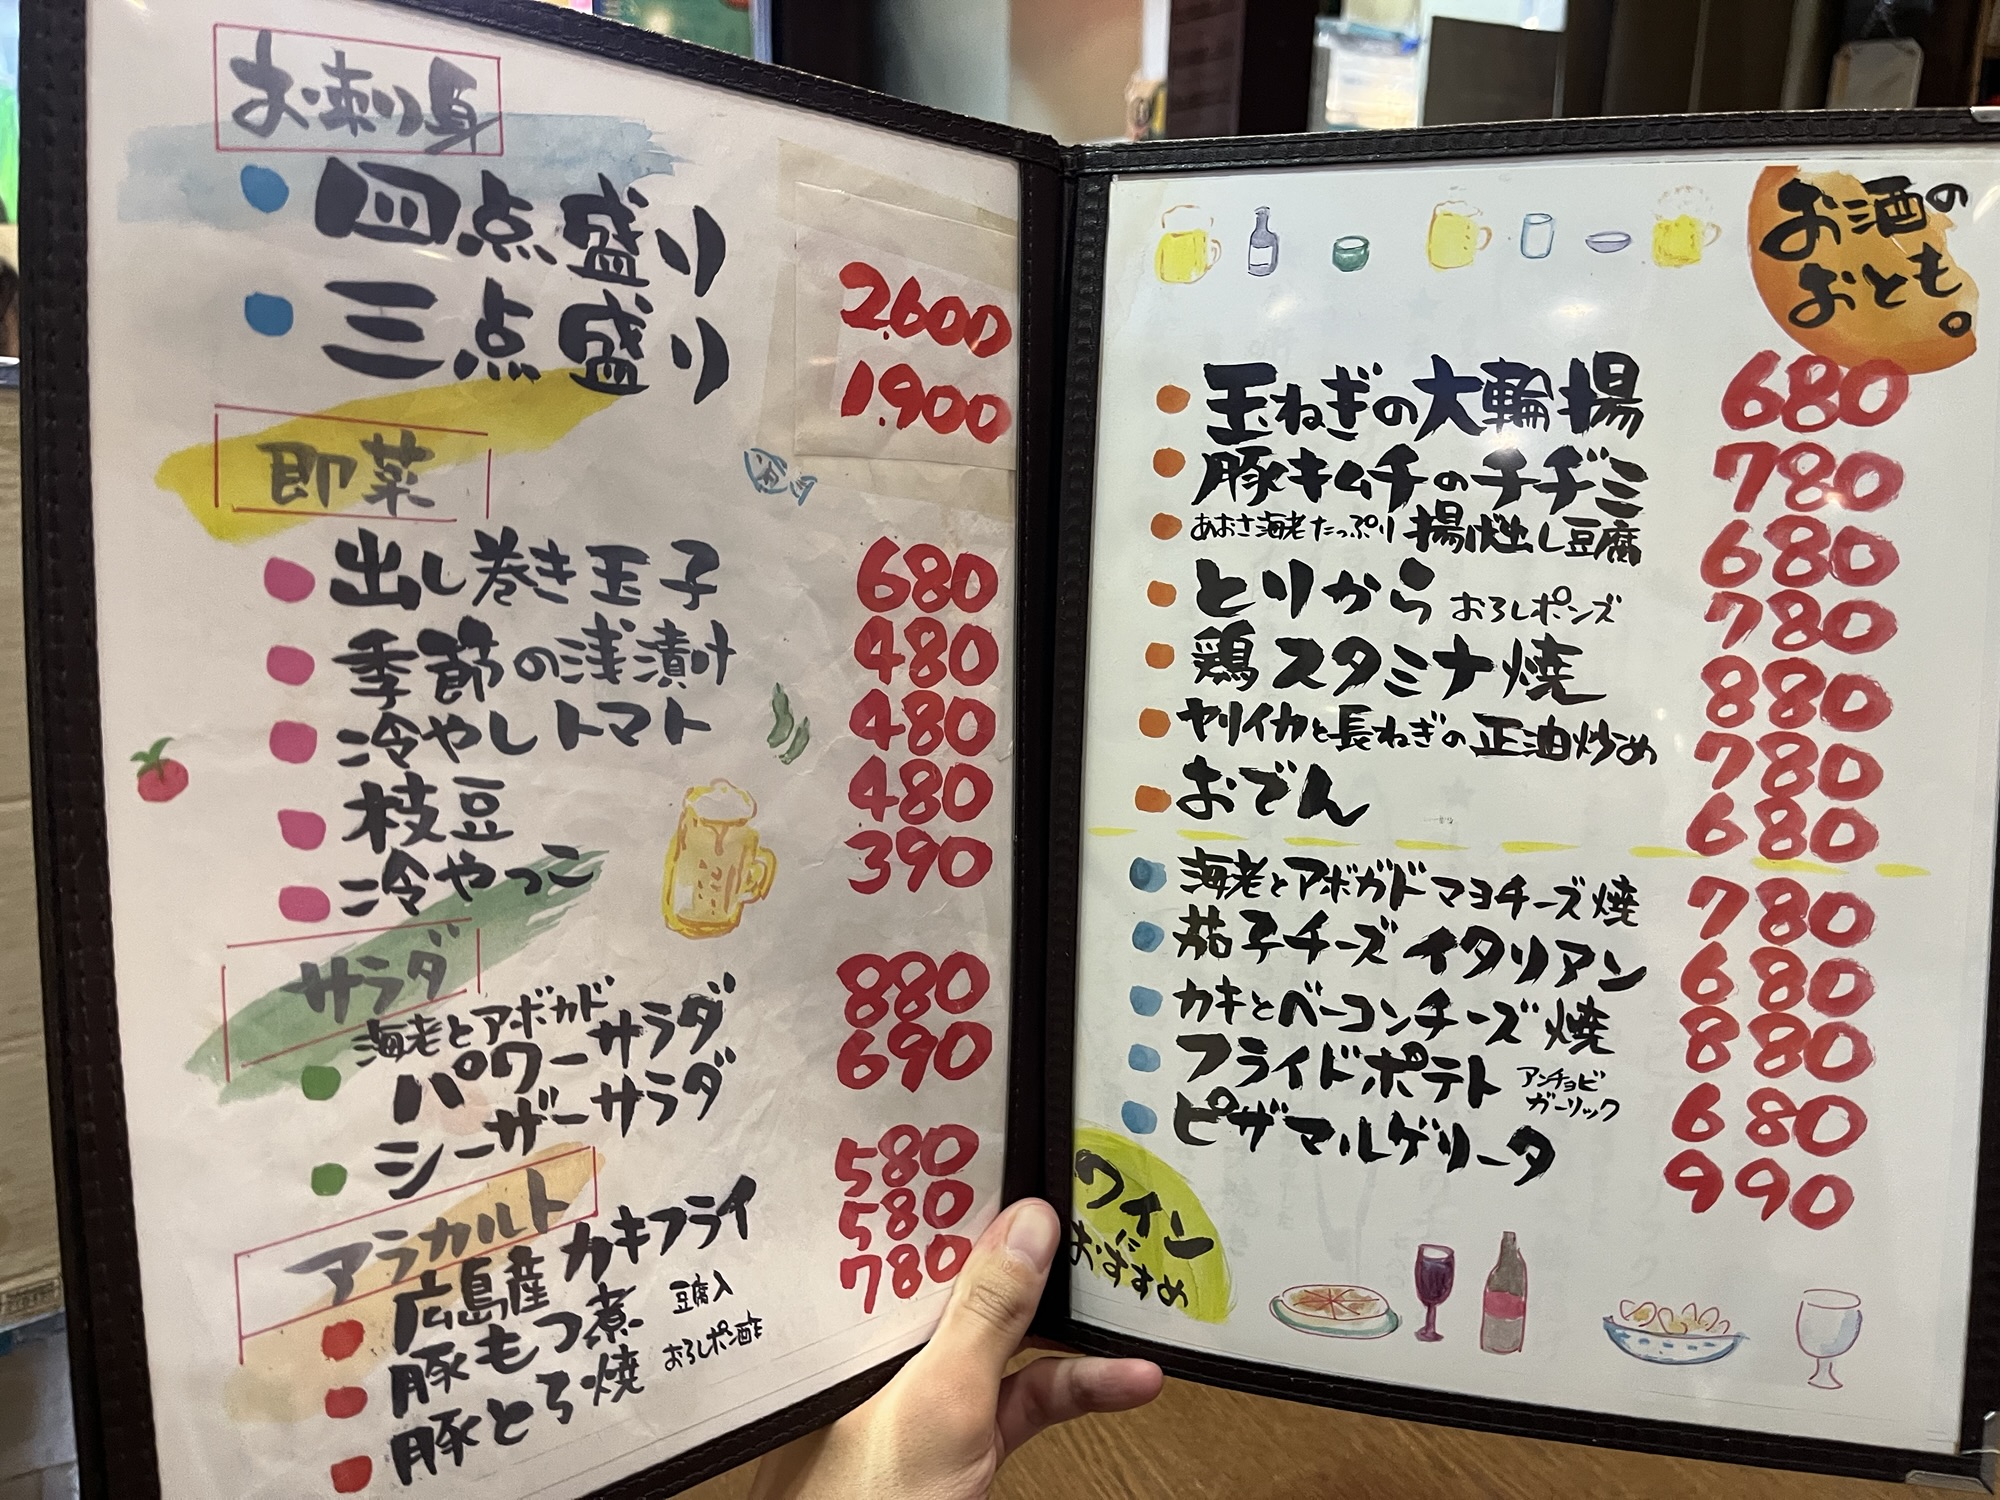 お刺り身
四点盛り 2.600
三点盛り 1.900
即菜
出し巻き玉子 680
季節の浅漬け 480
冷やしトマト 480
枝豆 480
冷やっこ 390
サラダ
海老とアボカド
パワーサラダ 880
シーザーサラダ 690
アラカルト
広島産カキフライ 580
豚もつ煮 豆腐入 580
豚とろ焼 おろしポン酢 780
お酒の
おとも。
玉ねぎの大輪揚 680
豚キムチのチヂミ 780
あおさ海老たっぷり揚げ出し豆腐 680
とりから おろしポンズ 780
鶏スタミナ焼 880
ヤリイカと長ねぎの正油炒め 780
おでん 680
海老とアボガドマヨチーズ焼 780
茄子チーズイタリアン 680
カキとベーコンチーズ焼 880
フライドポテト アンチョビ ガーリック 680
ピザマルゲリータ 990
ワイン
に
おすすめ